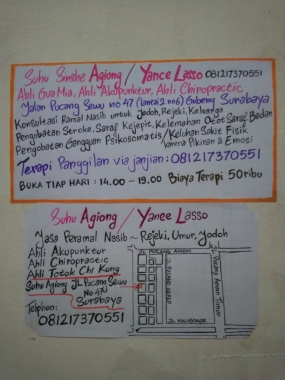 Suhu Sinshe Agiong / Yance Lasso 081217370551
Ahli Gua Mia, Ahli Akupunktur, Ahli Chiropractic
Jalan Pucang Sewu no 47 (lantai 2 no 6) Gubeng Surabaya
Konsultasi Ramal Nasib untuk Jodoh, Rejeki, Keluarga
Pengobatan Stroke, Saraf Kejepit, Kelemahan Otot Saraf Badan
Pengobatan Gangguan Psikosomatis / Keluhan Sakit Fisik
karena Pikiran & Emosi
Terapi Panggilan via janjian : 081217370551
BUKA TIAP HARI : 14.00 - 19.00 Biaya Terapi 50ribu
Suhu Agiong / Yance Lasso
Jasa Peramal Nasib ~ Rejeki, Umur, Jodoh
Ahli Akupunktur
Ahli Chiropractic
Ahli Totok Chi Kung
Suhu Agiong JL Pucang Sewu
No 47
Surabaya
Telphon:
081217370551
JL PUCANG ANOM
JL PUCANG SEWU
JL Pucang Anom Timur
JL KALIBOKOR